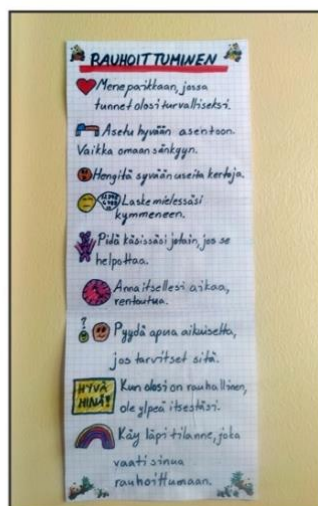 RAUHOITTUMINEN
Mene paikkaan, jossa
tunnet olosi turvalliseksi.
Asetu hyvään asentoon.
Vaikka omaan sänkyyn.
Hengitä syvään useita kertoja.
Laske mielessäsi
kymmeneen.
Pidä käsissäsi jotain, jos se
helpottaa.
Anna itsellesi aikaa,
rentoutua.
?
Pyydä apua aikuiselta,
jos tarvitset sitä.
HYVÄ
MINÄ!
Kun olosi on rauhallinen,
ole ylpeä itsestäsi.
Käy läpi tilanne, joka
vaati sinua
rauhoittumaan.